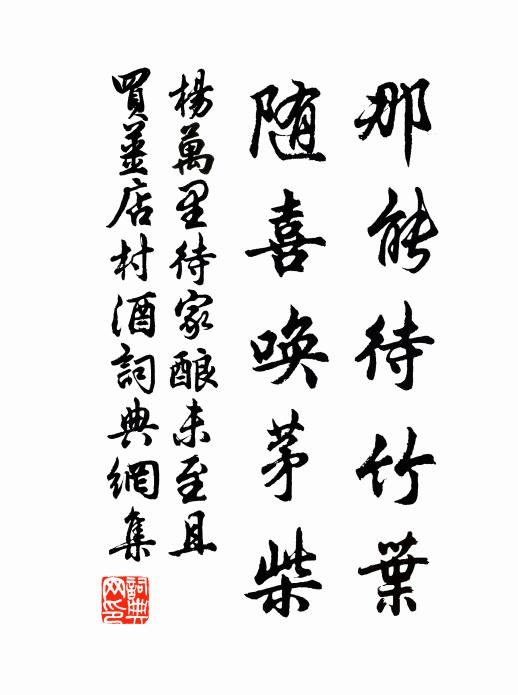 那能待竹葉
随喜喚茅柴
楊萬里待家酿未至且
買薑店村酒詞典網集
詞典